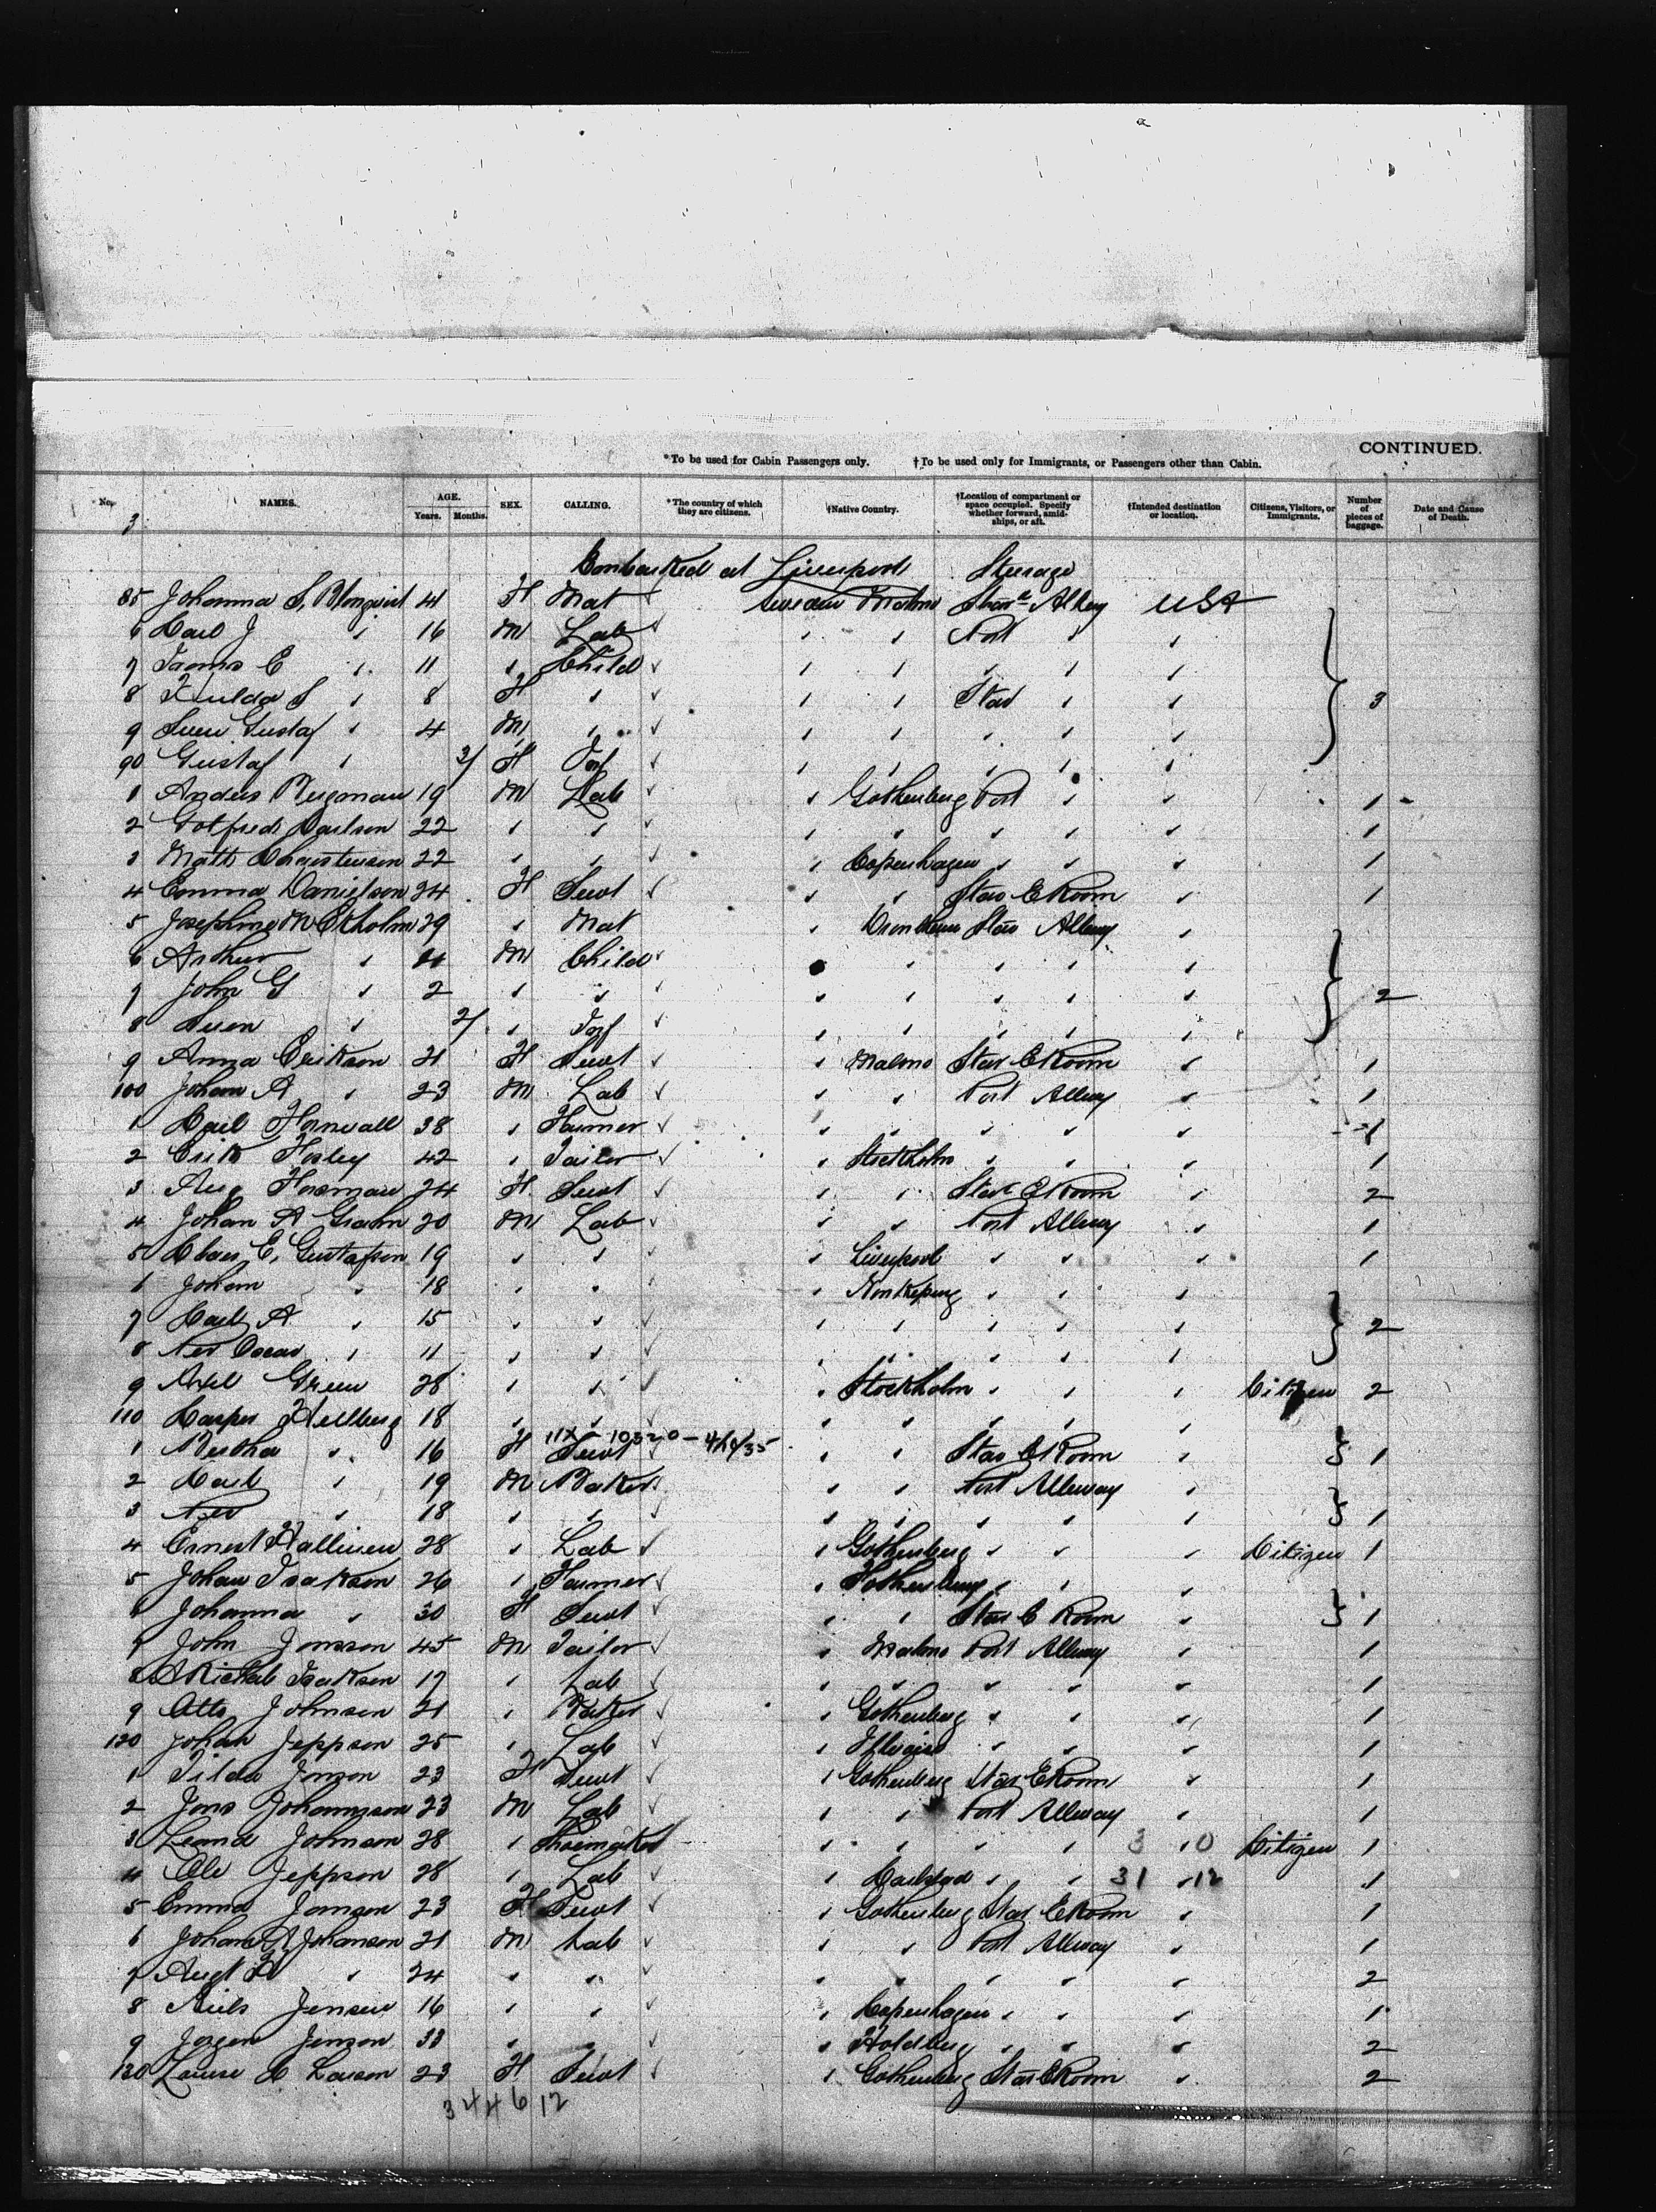 CONTINUED.
*To be used for Cabin Passengers only. †To be used only for Immigrants, or Passengers other than Cabin.
No. NAMES. AGE. Years. Months. SEX. CALLING. *The country of which they are citizens. †Native Country. †Location of compartment or space occupied. Specify whether forward, amidships, or aft. †Intended destination or location. Citizens, Visitors, or Immigrants. Number of pieces of baggage. Date and Cause of Death.
3
Embarked at Liverpool Steerage
85 Johanna S. Blomquist 41 F Mat Sweden Malmo Alley USA
6 Carl J " 16 M Lab " " Port " "
7 E " 11 " Child " " " " "
8 Hulda S " 8 F " " " Star " " 3
9 Sven Gustaf " 4 M " " " " " "
90 Gustaf " 3/ F Inf " " " " "
1 Anders Bergman 19 M Lab " Gothenberg Port " " 1
2 Gotfried Carlson 22 " " " " " " " 1
3 Matt Christensen 22 " " " Copenhagen " " " 1
4 Emma Danielson 24 F Servt " " Star E Room " 1
5 Josephine M Ekholm 29 " Mat " Star Alleway "
6 Arthur " M Child " " " " "
7 John G " 2 " " " " " " " 2
8 Sven " 2/ " Inf " " " " "
9 Anna Erikson 21 F Servt " Malmo Star E Room " 1
100 Johan A " 23 M Lab " " Port Alleway " 1
1 Carl Fornvall 38 " Farmer " " " " " 1
2 Erik 42 " Tailor " Stockholm " " " 1
3 Aug Forsman 24 F Servt " " Star E Room " 2
4 Johan A Grahn 20 M Lab " " Port Alleway " 1
5 Claes E. Gustafson 19 " " " Liverpool " " " 1
6 Johan " 18 " " " Norrkeping " " "
7 Carl A " 15 " " " " " " " 2
8 Oscar " 11 " " " " " " "
9 Axel Green 28 " " " Stockholm " " " Citizen 2
110 Casper Hellberg 18 " " " " " " "
11X-10320-4/
1 Bertha " 16 F Servt " " Star E Room " 1
2 Carl " 19 M Baker " " Port Alleway "
3 " 18 " " " " " " " 1
4 Ernest 28 " Lab " Gothenberg " " " Citizen 1
5 Johan Isakson 26 " Farmer " Gothenberg " " "
6 Johanna " 30 F Servt " " Star E Room " 1
7 John Jonsson 45 M Tailor " Malmo Port Alleway " 1
8 Isakson 17 " Lab " " " " " 1
9 Otto Johnson 21 " Baker " Gothenberg " " " 1
120 Johan Jeppson 25 " Lab " " " " 1
1 Tilda Jonson 23 F Servt " Gothenberg Star E Room " 1
2 Jons Johannson 23 M Lab " " Port Alleway " 1
3 Johnson 28 " Shoemaker " " " " 3 10 Citizen 1
4 Ole Jeppson 28 " Lab " Carlstad " " 31 12 1
5 Emma Jonson 23 F Servt " Gothenberg Star E Room " 1
6 Johan A Johanson 21 M Lab " " Port Alleway " 1
7 Augt " 24 " " " " " " " 2
8 Niels Jensen 16 " " " Copenhagen " " " 1
9 Jorgen Jenson 33 " " " " " " 2
130 Louise C Larson 23 F Servt " Gothenberg Star E Room " 2
3 4 4 6 12